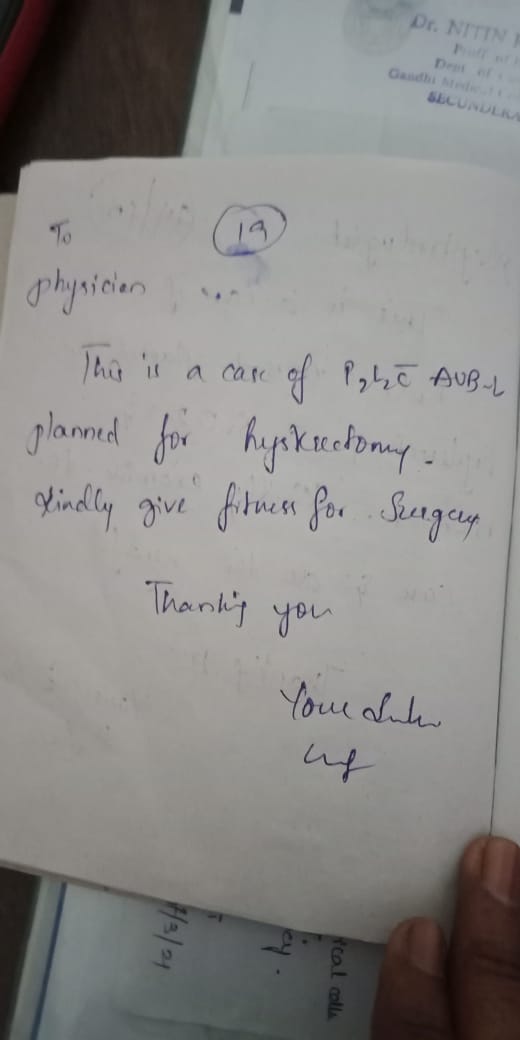 Dr. NITIN
Dept of
Gandhi Medical
SECUNDERA
19
To
physician ...
This is a case of P2L2 c̄ AUB-L
planned for hysterectomy.
Kindly give fitness for Surgery
Thanking you
Your
ical calls
ey.
/3/21